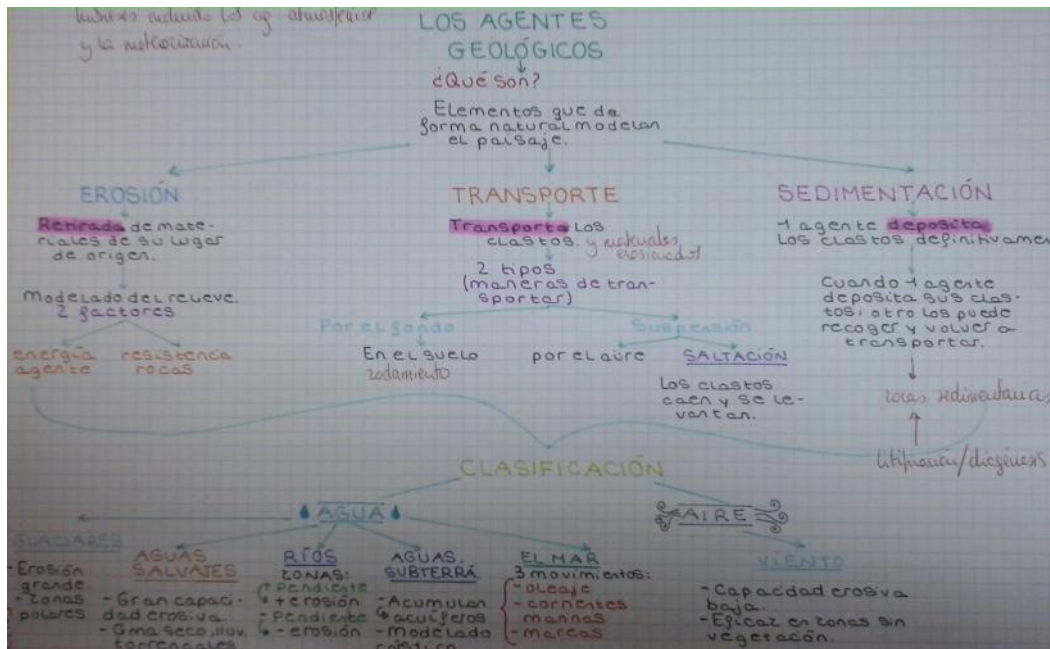 y la meteorización.
LOS AGENTES
GEOLÓGICOS
¿Qué son?
Elementos que de
forma natural modelan
el paisaje.
EROSIÓN
Retirada de mate-
riales de su lugar
de origen.
Modelado del relieve.
2 factores
energía
agente
resistencia
rocas
TRANSPORTE
Transporta los
clastos. y materiales
erosionados
2 tipos
(maneras de tran-
sportar)
Por el fondo
En el suelo
rodamiento
Suspensión
por el aire
SALTACIÓN
Los clastos
caen y se le-
vantan.
SEDIMENTACIÓN
1 agente deposita
los clastos definitivamen
Cuando 1 agente
deposita sus clas-
tos, otro los puede
recoger y volver a
transportar.
rocas sedimentarias
litificación/diagénesis
CLASIFICACIÓN
AGUA
AIRE
GLACIARES
-Erosión
grande.
-Zonas
polares
AGUAS
SALVAJES
-Gran capaci-
dad erosiva.
-Cima seco, lluv.
torrenciales
RÍOS
ZONAS:
Pendiente
+erosión
-Pendiente
-erosión
AGUAS.
SUBTERRÁ
-Acumulan
acuíferos
-Modelado
EL MAR
3 movimientos:
-oleaje
-corrientes
marinas
-mareas
VIENTO
-Capacidad erosiva
baja.
-Eficaz en zonas sin
vegetación.